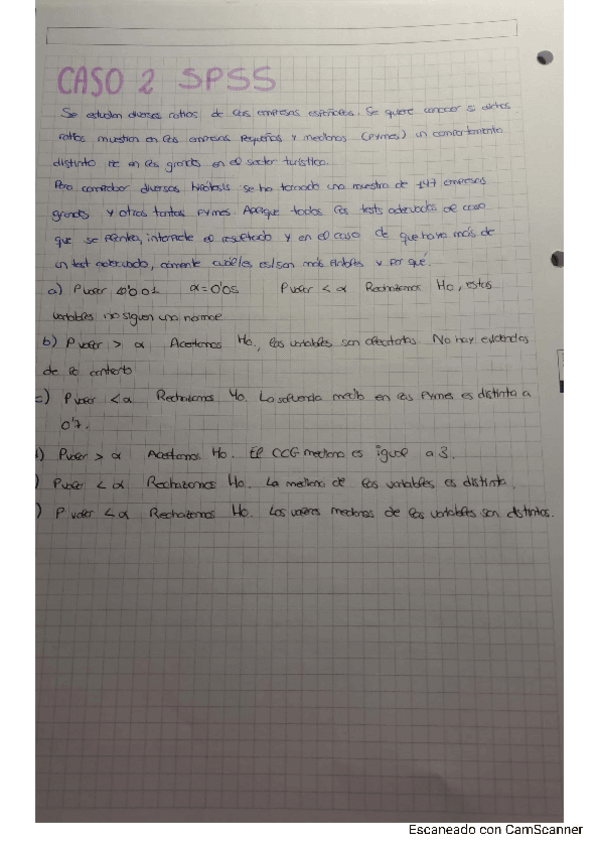 CASO 2 SPSS
Se estudian diversos ratios de las empresas españolas. Se quiere conocer si estos
ratios muestran en las empresas pequeñas y medianas (PYMES) un comportamiento
distinto que en las grandes en el sector turístico.
Para comprobar diversas hipótesis se ha tomado una muestra de 147 empresas
grandes y otras tantas PYMES. Aplique todos los tests adecuados de caso
que se plantea, interprete el resultado y en el caso de que haya más de
un test adecuado, comente cuál/es es/son más fiables y por qué.
a) P valor <0'001 α=0'05 P valor < α Rechazamos Ho, estas
variables no siguen una normal
b) P valor > α Aceptamos Ho, las variables son aleatorias. No hay evidencias
de lo contrario
c) P valor < α Rechazamos Ho. La solvencia media en las PYMES es distinta a
0'7.
) P valor > α Aceptamos Ho. El CCG mediano es igual a 3.
) P valor < α Rechazamos Ho. La mediana de las variables es distinta.
) P valor < α Rechazamos Ho. Los valores medianos de las variables son distintos.
Escaneado con CamScanner